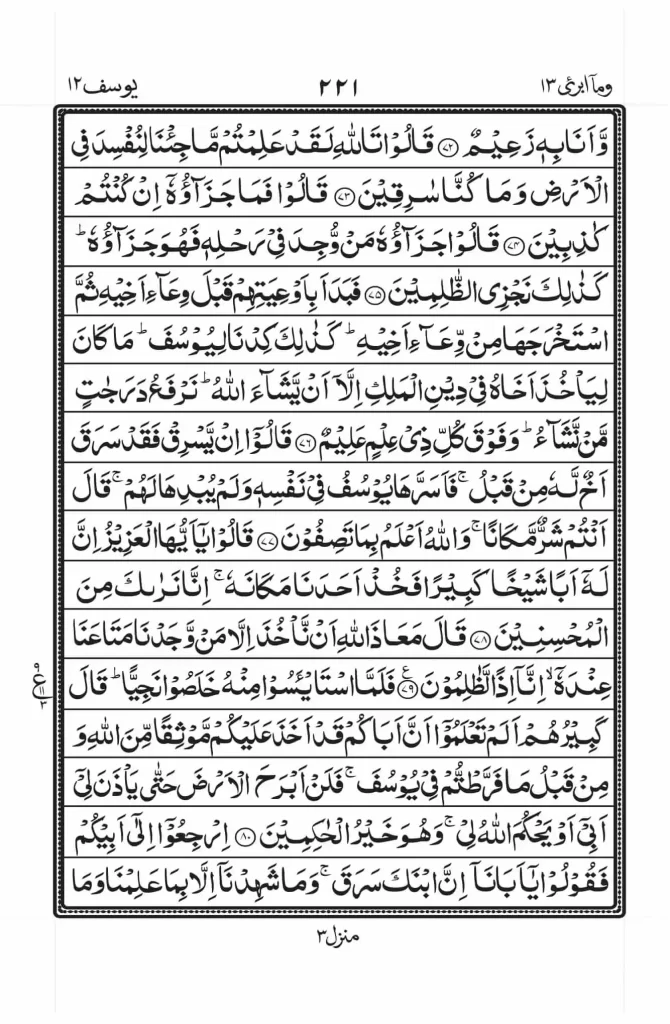 یوسف ۱۲ ۲۲۱ ومآ ابرئ ۱۳
وَّاَنَا بِهٖ زَعِیْمٌ ﴿۷۲﴾ قَالُوْا تَاللّٰهِ لَقَدْ عَلِمْتُمْ مَّا جِئْنَا لِنُفْسِدَ فِی
الْاَرْضِ وَمَا كُنَّا سٰرِقِیْنَ ﴿۷۳﴾ قَالُوْا فَمَا جَزَآؤُهٗۤ اِنْ كُنْتُمْ
كٰذِبِیْنَ ﴿۷۴﴾ قَالُوْا جَزَآؤُهٗ مَنْ وُّجِدَ فِیْ رَحْلِهٖ فَهُوَ جَزَآؤُهٗ ؕ
كَذٰلِكَ نَجْزِی الظّٰلِمِیْنَ ﴿۷۵﴾ فَبَدَاَ بِاَوْعِیَتِهِمْ قَبْلَ وِعَآءِ اَخِیْهِ ثُمَّ
اسْتَخْرَجَهَا مِنْ وِّعَآءِ اَخِیْهِ ؕ كَذٰلِكَ كِدْنَا لِیُوْسُفَ ؕ مَا كَانَ
لِیَاْخُذَ اَخَاهُ فِیْ دِیْنِ الْمَلِكِ اِلَّاۤ اَنْ یَّشَآءَ اللّٰهُ ؕ نَرْفَعُ دَرَجٰتٍ
مَّنْ نَّشَآءُ ؕ وَفَوْقَ كُلِّ ذِیْ عِلْمٍ عَلِیْمٌ ﴿۷۶﴾ قَالُوْۤا اِنْ یَّسْرِقْ فَقَدْ سَرَقَ
اَخٌ لَّهٗ مِنْ قَبْلُ ۚ فَاَسَرَّهَا یُوْسُفُ فِیْ نَفْسِهٖ وَلَمْ یُبْدِهَا لَهُمْ ۚ قَالَ
اَنْتُمْ شَرٌّ مَّكَانًا ۚ وَاللّٰهُ اَعْلَمُ بِمَا تَصِفُوْنَ ﴿۷۷﴾ قَالُوْا یٰۤاَیُّهَا الْعَزِیْزُ اِنَّ
لَهٗۤ اَبًا شَیْخًا كَبِیْرًا فَخُذْ اَحَدَنَا مَكَانَهٗ ۚ اِنَّا نَرٰىكَ مِنَ
الْمُحْسِنِیْنَ ﴿۷۸﴾ قَالَ مَعَاذَ اللّٰهِ اَنْ نَّاْخُذَ اِلَّا مَنْ وَّجَدْنَا مَتَاعَنَا
عِنْدَهٗۤ ۙ اِنَّاۤ اِذًا لَّظٰلِمُوْنَ ﴿۷۹﴾ فَلَمَّا اسْتَایْـَٔسُوْا مِنْهُ خَلَصُوْا نَجِیًّا ؕ قَالَ
كَبِیْرُهُمْ اَلَمْ تَعْلَمُوْۤا اَنَّ اَبَاكُمْ قَدْ اَخَذَ عَلَیْكُمْ مَّوْثِقًا مِّنَ اللّٰهِ وَ
مِنْ قَبْلُ مَا فَرَّطْتُّمْ فِیْ یُوْسُفَ ۚ فَلَنْ اَبْرَحَ الْاَرْضَ حَتّٰی یَاْذَنَ لِیْۤ
اَبِیْۤ اَوْ یَحْكُمَ اللّٰهُ لِیْ ۚ وَهُوَ خَیْرُ الْحٰكِمِیْنَ ﴿۸۰﴾ اِرْجِعُوْۤا اِلٰۤی اَبِیْكُمْ
فَقُوْلُوْا یٰۤاَبَانَاۤ اِنَّ ابْنَكَ سَرَقَ ۚ وَمَا شَهِدْنَاۤ اِلَّا بِمَا عَلِمْنَا وَمَا
منزل ۳